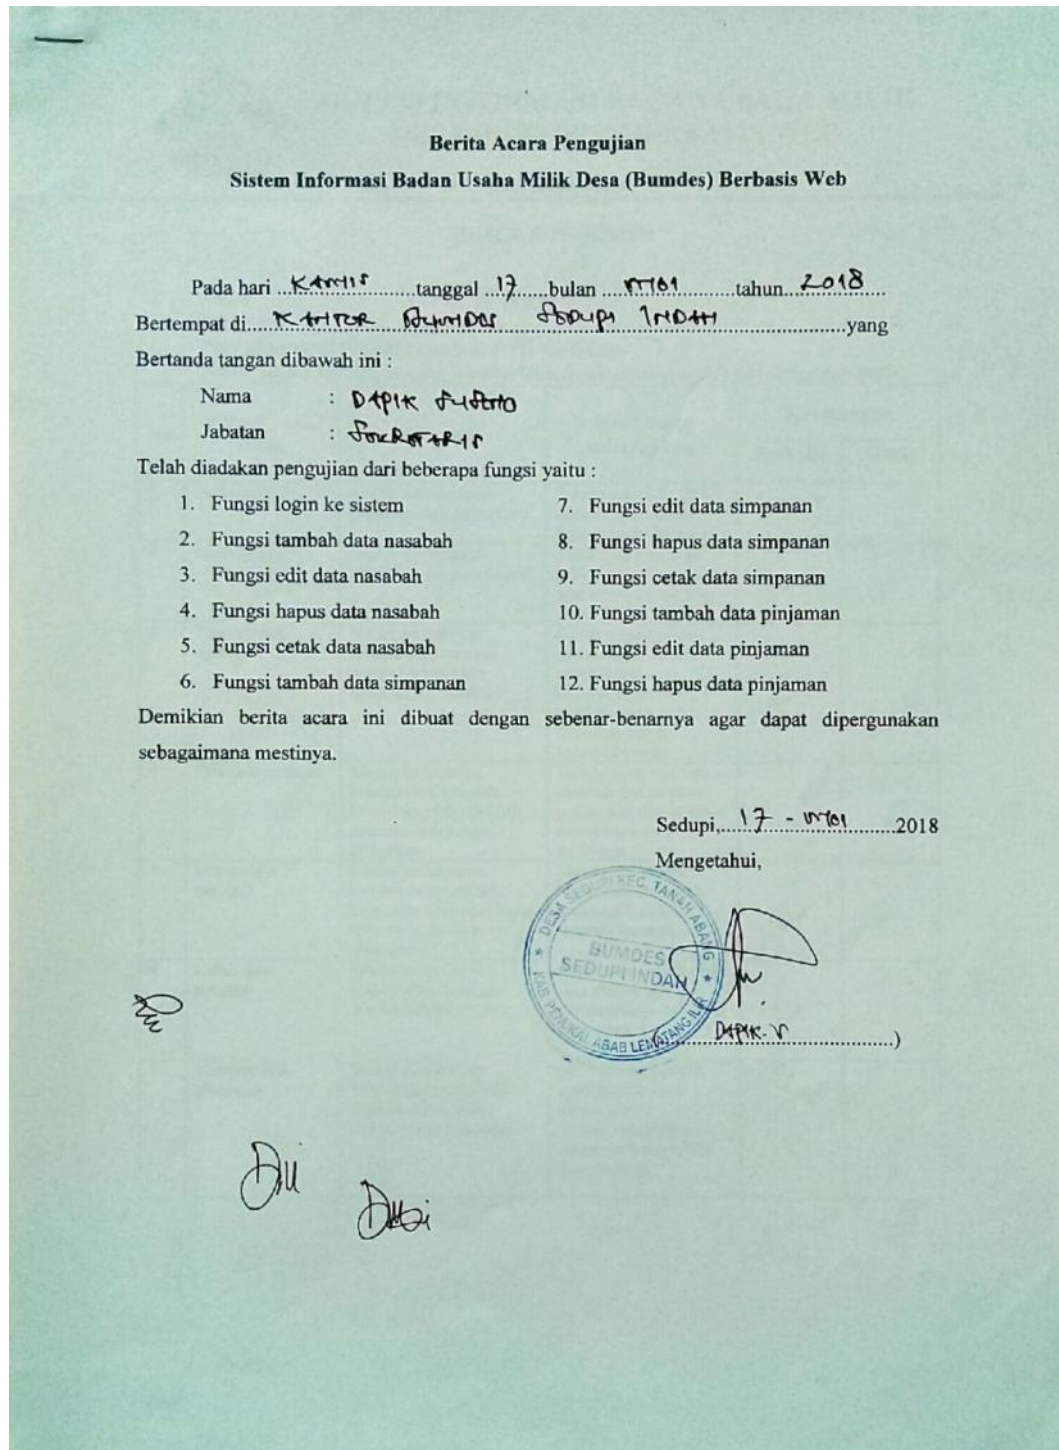 Berita Acara Pengujian
Sistem Informasi Badan Usaha Milik Desa (Bumdes) Berbasis Web
Pada hari ...KAMIS..........tanggal ...17......bulan ....MEI..........tahun...2018....
Bertempat di.....KANTOR BUMDES SEDUPI INDAH....................yang
Bertanda tangan dibawah ini :
Nama : DAPIK
Jabatan : SEKRETARIS
Telah diadakan pengujian dari beberapa fungsi yaitu :
1. Fungsi login ke sistem
2. Fungsi tambah data nasabah
3. Fungsi edit data nasabah
4. Fungsi hapus data nasabah
5. Fungsi cetak data nasabah
6. Fungsi tambah data simpanan
7. Fungsi edit data simpanan
8. Fungsi hapus data simpanan
9. Fungsi cetak data simpanan
10. Fungsi tambah data pinjaman
11. Fungsi edit data pinjaman
12. Fungsi hapus data pinjaman
Demikian berita acara ini dibuat dengan sebenar-benarnya agar dapat dipergunakan
sebagaimana mestinya.
Sedupi,.....17 - MEI.........2018
Mengetahui,
DESA SEDUPI KEC. TANAH ABANG
BUMDES
SEDUPI INDAH
KAB. PENUKAL ABAB LEMATANG ILIR
(..........DAPIK.S....................)